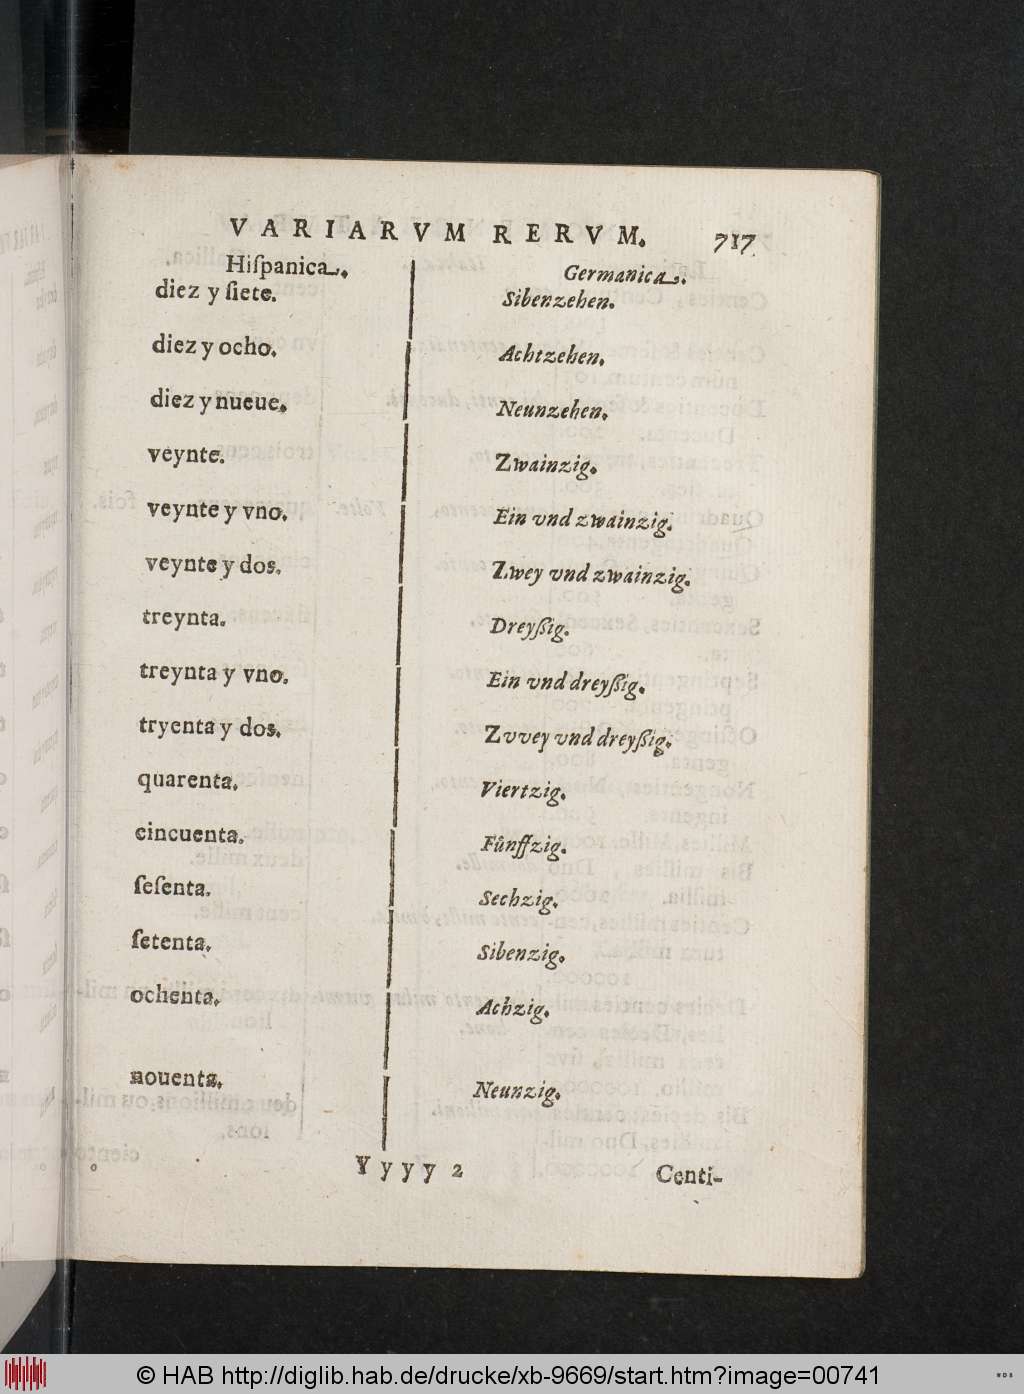 VARIARVM RERVM. 717
Hiſpanica. Germanica.
diez y ſiete. Sibenzehen.
diez y ocho. Achtzehen.
diez y nueue. Neunzehen.
veynte. Zwainzig.
veynte y vno. Ein vnd zwainzig.
veynte y dos. Zwey vnd zwainzig.
treynta. Dreyßig.
treynta y vno. Ein vnd dreyßig.
tryenta y dos. Zvvey vnd dreyßig.
quarenta. Viertzig.
cincuenta. Fůnffzig.
ſeſenta. Sechzig.
ſetenta. Sibenzig.
ochenta. Achzig.
nouenta. Neunzig.
Yyyy 2 Centi-
© HAB http://diglib.hab.de/drucke/xb-9669/start.htm?image=00741